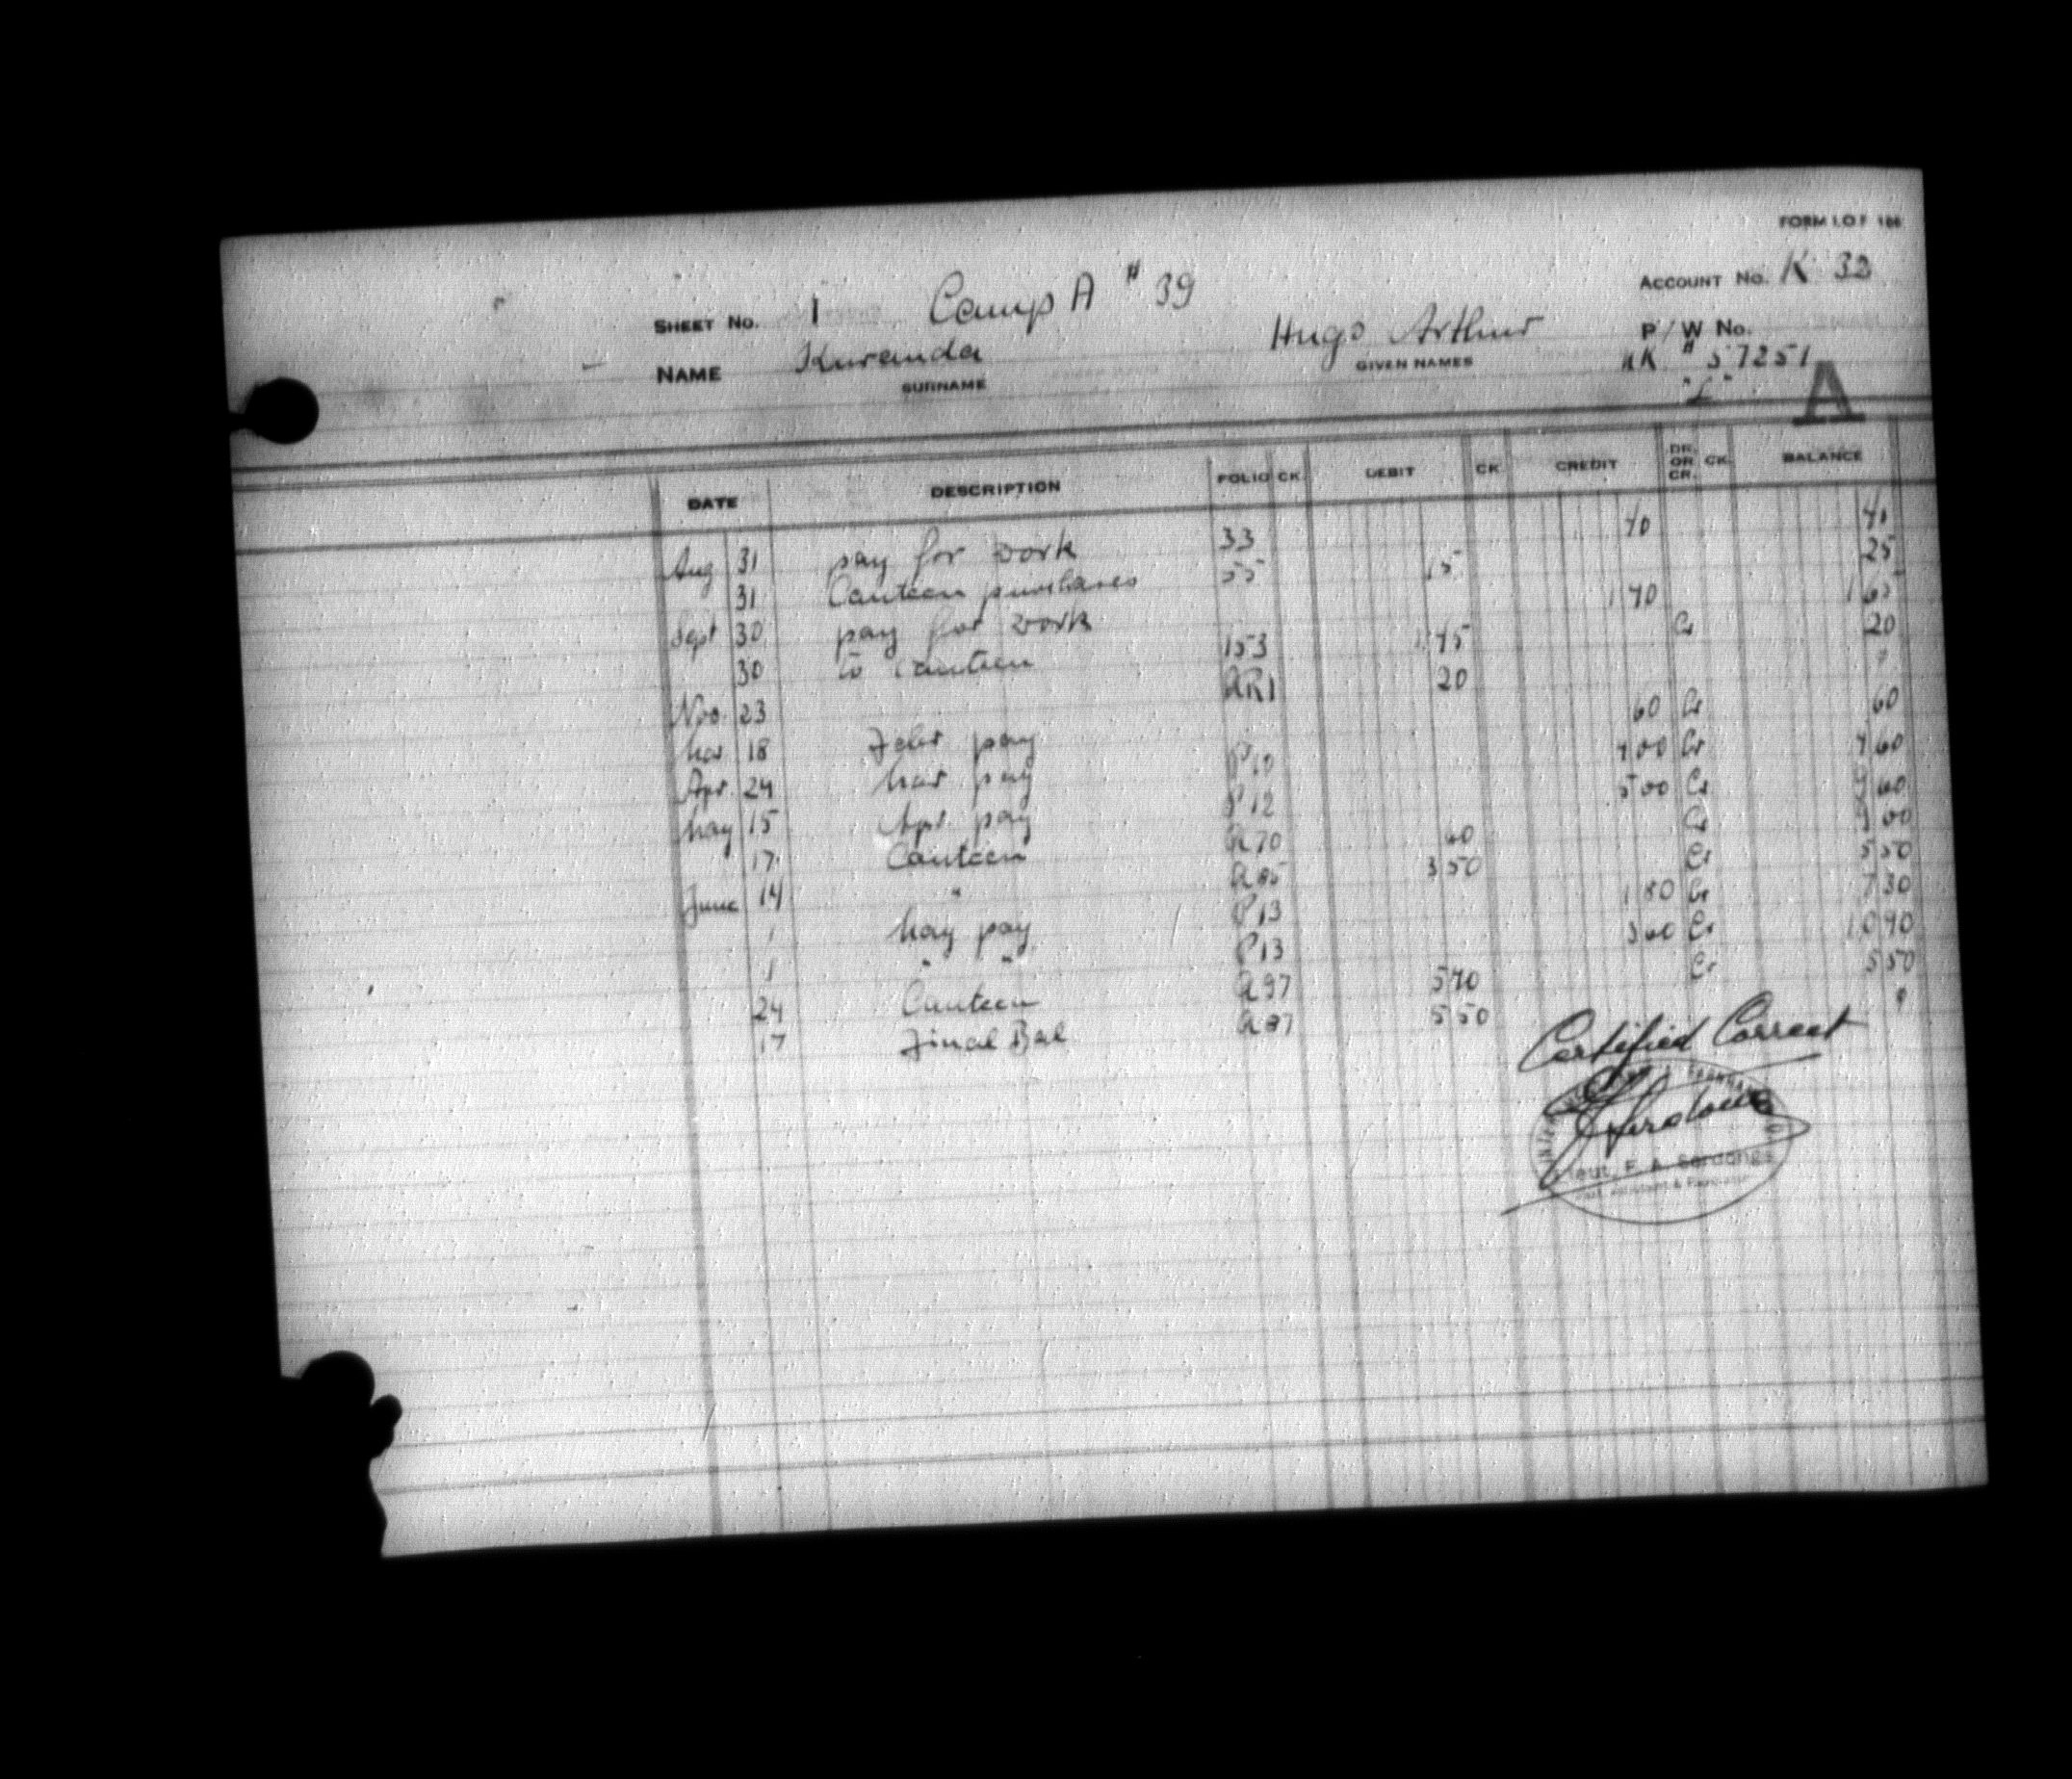 FORM I.O.F 166
SHEET No. 1 Camp A # 39 ACCOUNT No. K 32
NAME Kuranda Hugo Arthur P/W No.
SURNAME GIVEN NAMES # 57251
"L" A
DATE DESCRIPTION FOLIO CK. DEBIT CK. CREDIT DR. OR CR. CK. BALANCE
Aug 31 pay for work 33 40 40
31 Canteen purchases 55 15 25
Sept 30 pay for work 1 40 1 65
30 to canteen 153 1 45 Cr 20
Nov. 23 AR1 20
Mar 18 Febr pay 60 Cr 60
Apr. 24 Mar pay P10 4 00 Cr 4 60
May 15 Apr. pay P12 5 00 Cr 9 60
17 Canteen A70 60 Cr 9 00
June 14 " A85 3 50 Cr 5 50
1 May pay P13 1 80 Cr 7 30
1 " " P13 3 60 Cr 10 90
24 Canteen A97 5 40 Cr 5 50
17 Final Bal A97 5 50
Certified Correct
Lieut. F. A. Serdongs